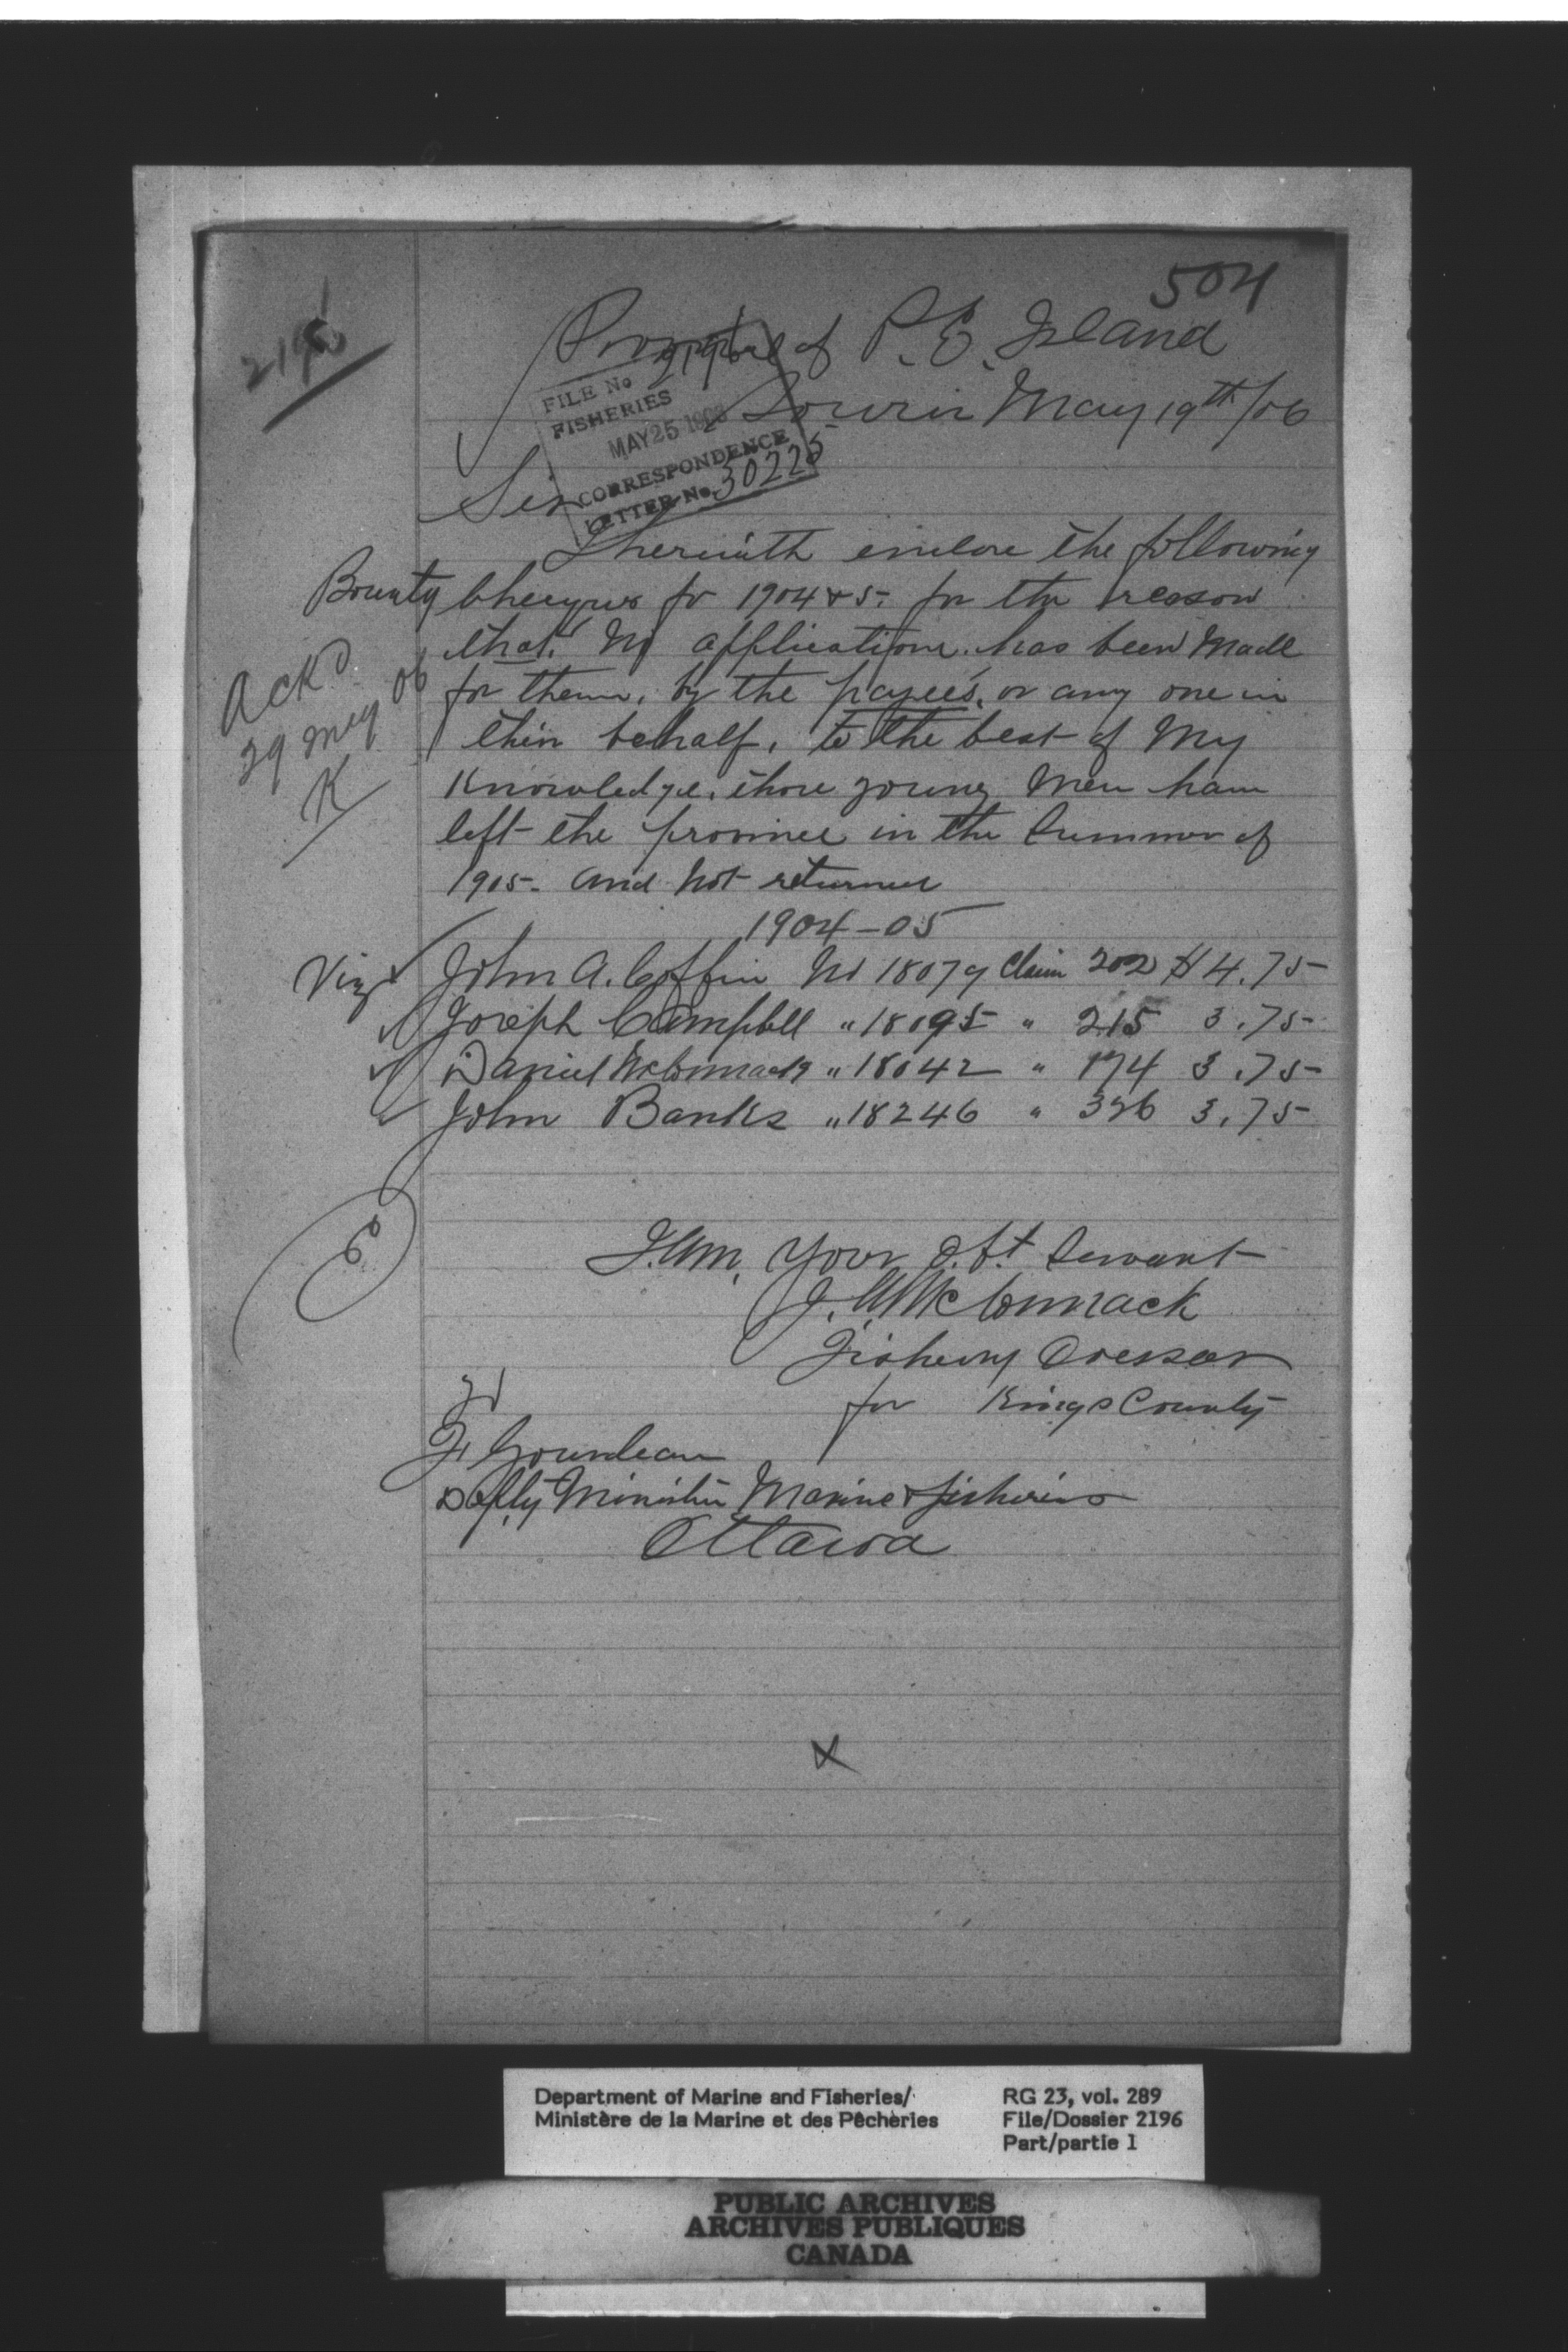 504
2196
Province of P. E. Island
Souris May 19th/06
FILE No 2196
FISHERIES
MAY 25 1906
CORRESPONDENCE
LETTER No. 30225
Sir
I herewith enclose the following
Bounty Cheques for 1904 & 5. for the reason
that no application has been Made
for them, by the payee's, or any one in
their behalf, to the best of My
Knowledge, those young Men have
left the province in the Summer of
1905. and Not returned
Ackd
29 May 06
K
1904-05
Viz John A. Coffin No 18079 Claim 202 $4.75
Joseph Campbell " 18095 " 215 3.75
Daniel McCormack " 18042 " 174 3.75
John Banks " 18246 " 326 3.75
I. Am, Your Obt. Servant
J. A. McCormack
Fishery Overseer
for Kings County
To
F Gourdeau
Depty Minister Marine & Fisheries
Ottawa
X
Department of Marine and Fisheries/
Ministère de la Marine et des Pêcheries
RG 23, vol. 289
File/Dossier 2196
Part/partie 1
PUBLIC ARCHIVES
ARCHIVES PUBLIQUES
CANADA